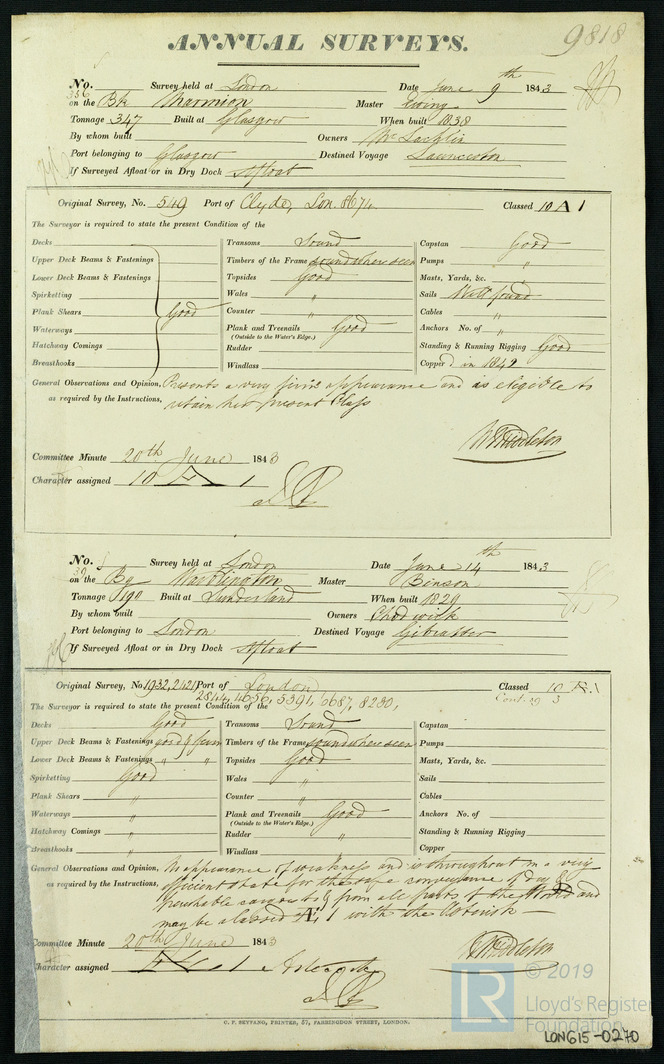 ANNUAL SURVEYS.
9818
No. 356 Survey held at London Date June 9th 1843
on the Bk Marmion Master Ewing
Tonnage 347 Built at Glasgow When built 1838
By whom built Owners McLachlin
Port belonging to Glasgow Destined Voyage Launceston
If Surveyed Afloat or in Dry Dock Afloat
Original Survey, No. 549 Port of Clyde, Lon. 874 Classed 10 A 1
The Surveyor is required to state the present Condition of the
Decks Transoms Sound Capstan Good
Upper Deck Beams & Fastenings Timbers of the Frame sound where seen Pumps "
Lower Deck Beams & Fastenings Topsides Good Masts, Yards, &c.
Spirketting Wales " Sails Well found
Plank Shears Good Counter " Cables "
Waterways Plank and Treenails Good Anchors No. of "
(Outside to the Water's Edge.)
Hatchway Comings Rudder Standing & Running Rigging Good
Breasthooks Windlass Copper'd in 1842
General Observations and Opinion, Presents a very fine appearance and is eligible to
as required by the Instructions, retain her present Class
Middleton
Committee Minute 20th June 1843
Character assigned 10 A 1
No. 39 Survey held at London Date June 14th 1843
on the Bg Master Benson
Tonnage 190 Built at Sunderland When built 1829
By whom built Owners Chadwick
Port belonging to London Destined Voyage Gibralter
If Surveyed Afloat or in Dry Dock Afloat
Original Survey, No. 1932, 2421 Port of London Classed 10 A 1
2844, 4656, 5391, 6687, 8230, Cont. 29 3
The Surveyor is required to state the present Condition of the
Decks Good Transoms Sound Capstan
Upper Deck Beams & Fastenings good & firm Timbers of the Frame sound where seen Pumps
Lower Deck Beams & Fastenings " " Topsides Good Masts, Yards, &c.
Spirketting Good Wales " Sails
Plank Shears " Counter " Cables
Waterways " Plank and Treenails Good Anchors No. of
(Outside to the Water's Edge.)
Hatchway Comings " Rudder " Standing & Running Rigging
Breasthooks " Windlass Copper
General Observations and Opinion, No appearance of weakness and is throughout in a very
as required by the Instructions, efficient state for the safe conveyance of dry &
perishable cargoes to & from all parts of the World and
may be classed Æ 1 with the Asterisk
Middleton
Committee Minute 20th June 1843
Character assigned Æ 1 Asterisk
C. F. SEYFANG, PRINTER, 57, FARRINGDON STREET, LONDON.
LR © 2019
Lloyd's Register
Foundation
LON615-0270